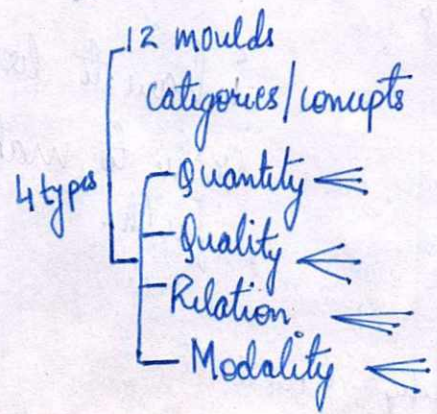 12 moulds
categories/concepts
4 types
Quantity
Quality
Relation
Modality